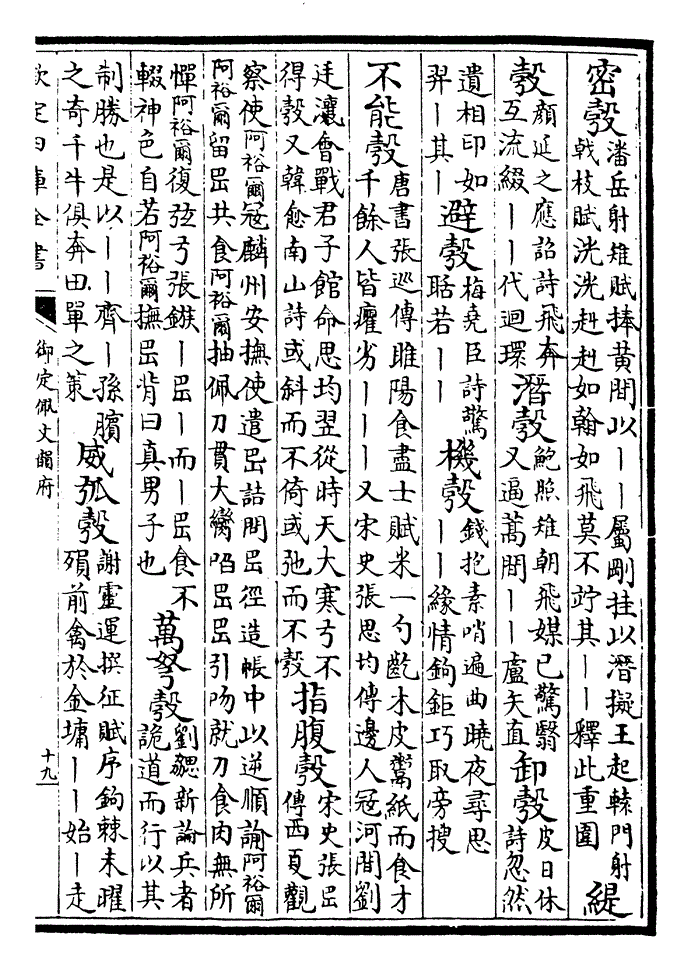 密彀潘岳射雉賦捧黄間以丨丨屬剛挂以潛擬王起轅門射
戟枝賦洸洸赳赳如翰如飛莫不竚其丨丨釋此重圍緹
彀顔延之應詔詩飛奔
互流綴丨丨代迴環潛彀鮑照雉朝飛媒已驚翳
又逼蒿間丨丨盧矢直卸彀皮日休
詩忽然
遺相印如
羿丨其丨避彀梅堯臣詩驚
聒若丨丨機彀錢抱素哨遍曲曉夜尋思
丨丨緣情鉤鉅巧取旁搜
不能彀唐書張巡傳睢陽食盡士賦米一勺齕木皮鬻紙而食才
千餘人皆癯劣丨丨丨又宋史張思均傳邊人寇河間劉
廷瀼會戰君子館命思均翌從時天大寒弓不
得彀又韓愈南山詩或斜而不倚或弛而不彀指腹彀宋史張岊
傳西夏觀
察使阿裕爾寇麟州安撫使遣岊詰問岊徑造帳中以逆順諭阿裕爾
阿裕爾留岊共食阿裕爾抽佩刀貫大臠啗岊岊引吻就刀食肉無所
憚阿裕爾復弦弓張鏃丨岊丨而丨岊食不
輟神色自若阿裕爾撫岊背曰真男子也萬弩彀劉勰新論兵者
詭道而行以其
制勝也是以丨丨齊丨孫臏
之奇千牛俱奔田單之策威弧彀謝靈運撰征賦序鉤棘未曜
殞前禽於金墉丨丨始丨走
欽定四庫全書
御定佩文韻府
十九